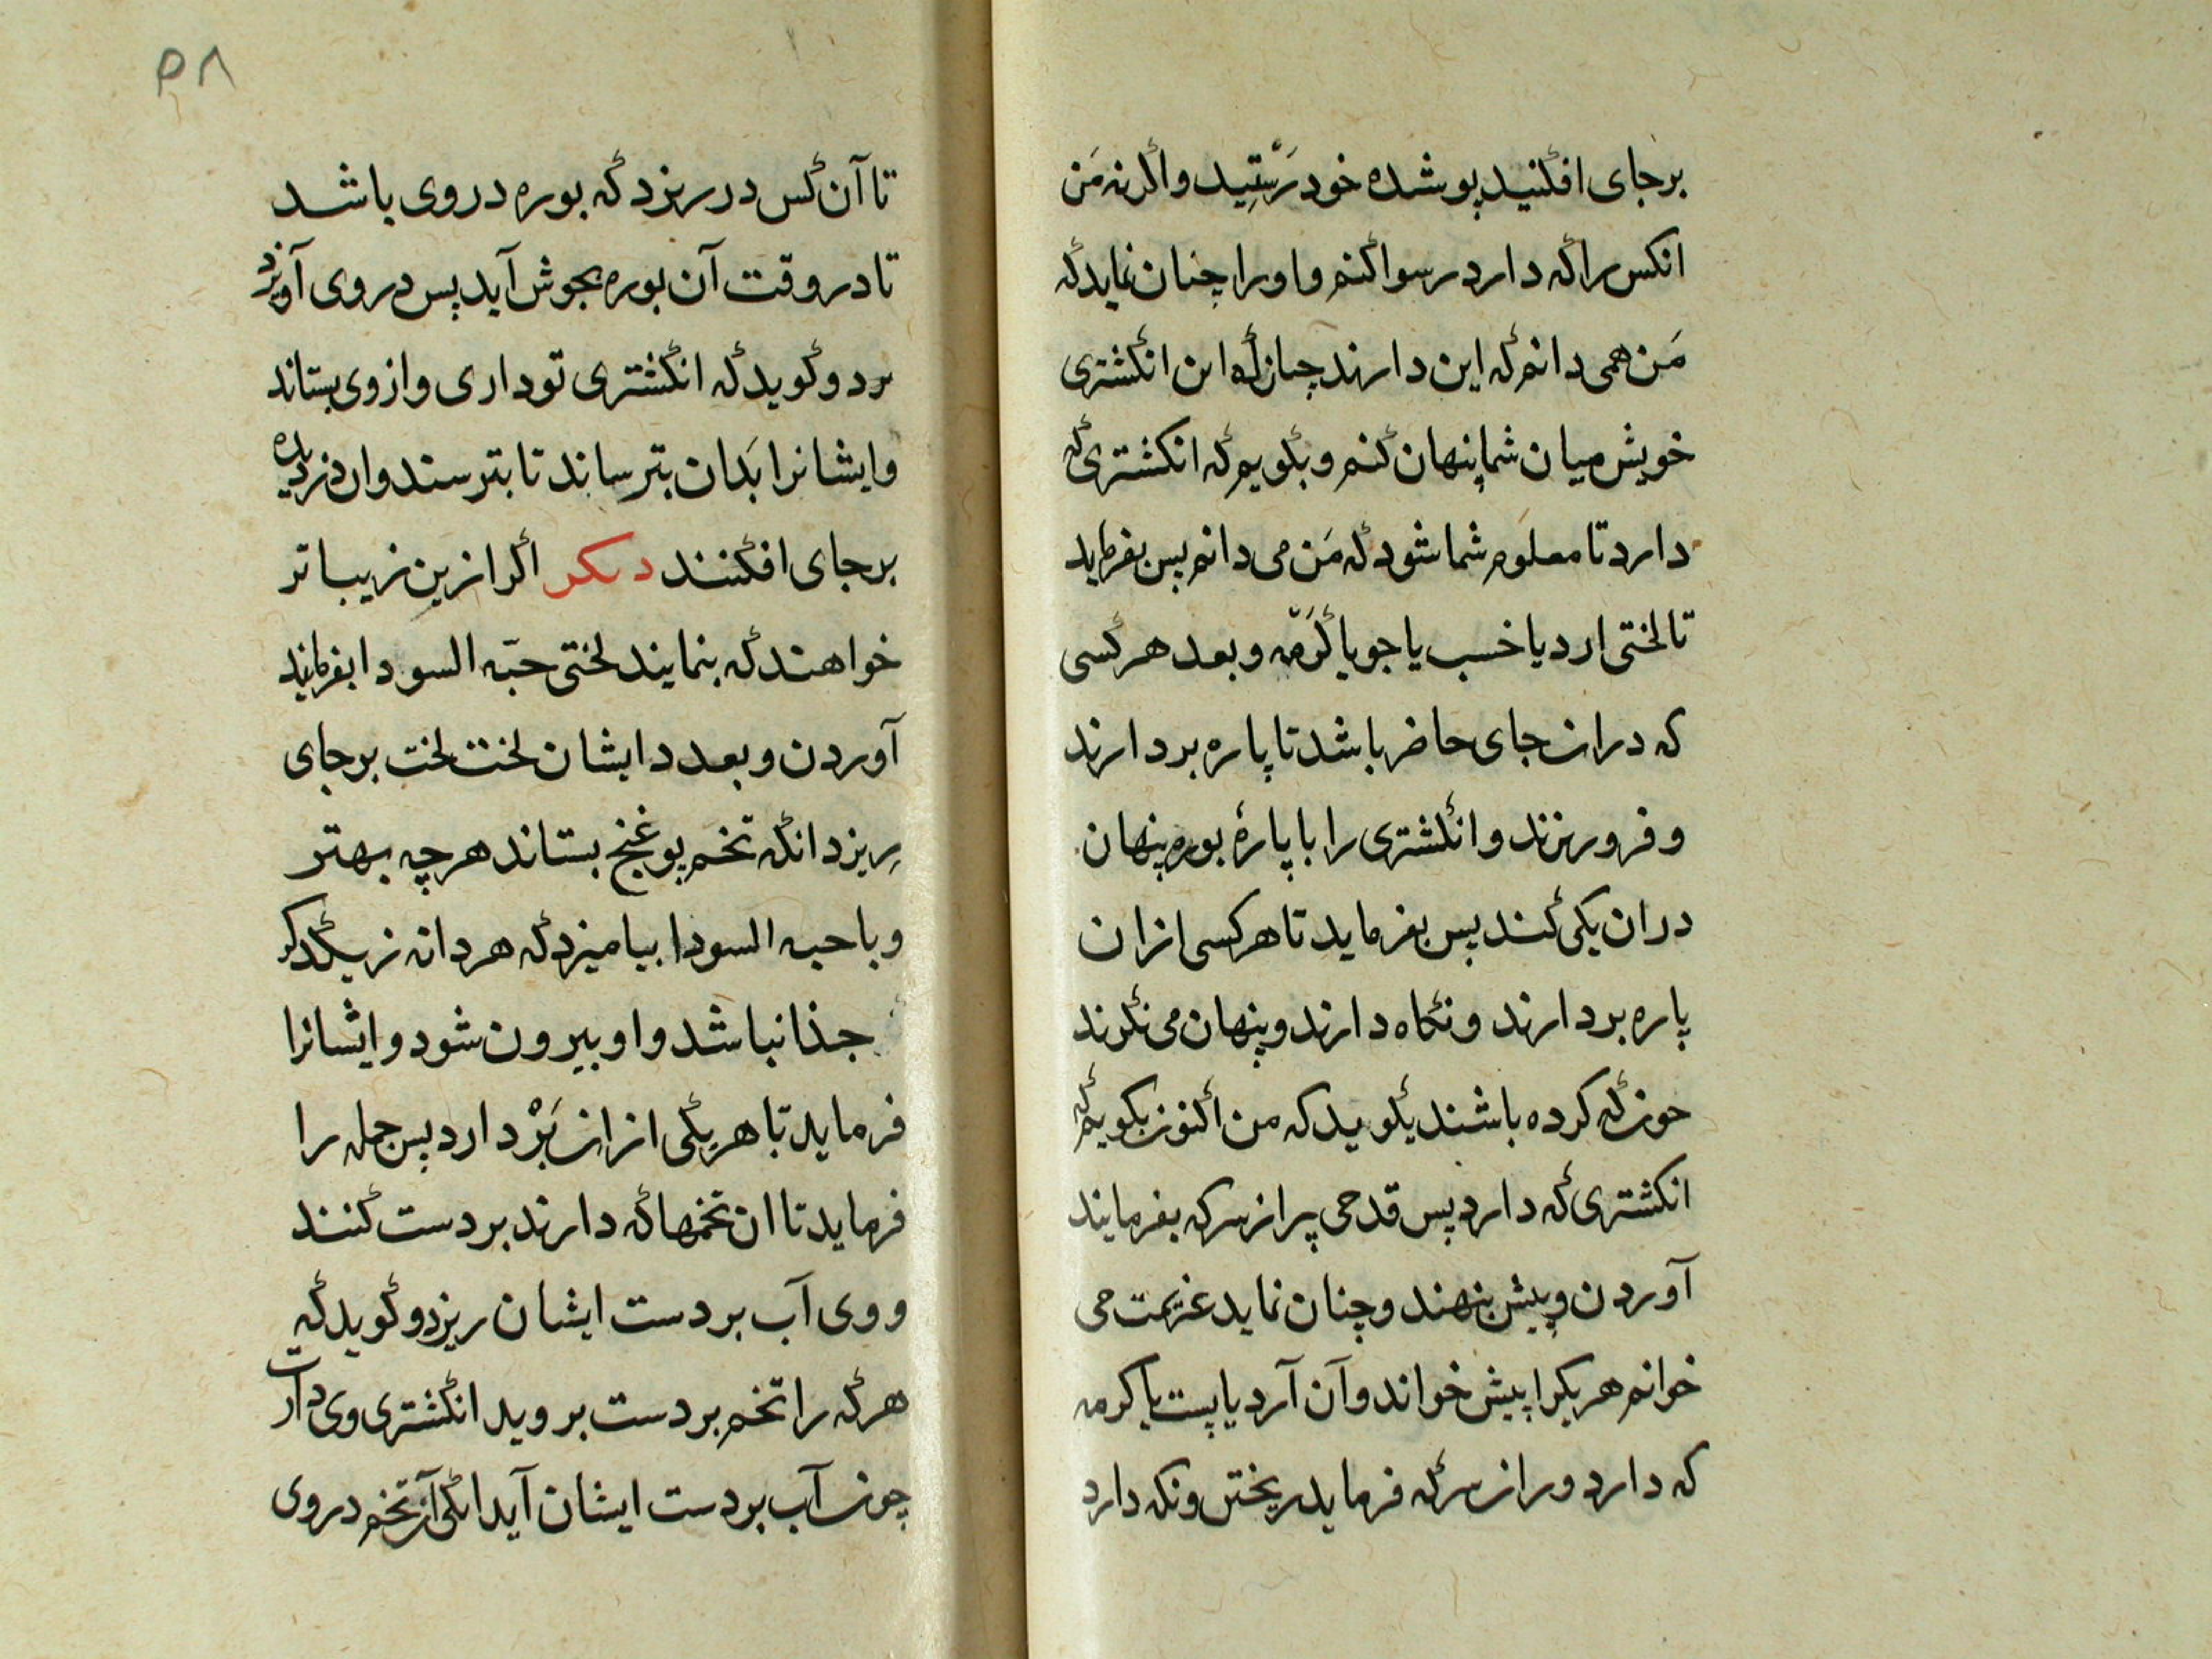 برجای افکنید پوشده خود رَستِید واکرنه مَن
انکس را که دارد رسوا کنم و اورا چنان نماید که
مَن همی دانم که این دارند چنان که این انکشتری
خویش میان شما پنهان کنم و بکویم که انکشتری که
دارد تا معلوم شما شود که مَن می دانم پس بفرماید
تا لختی ارد یا خسب یا جو یا کرمّه و بعد هر کسی
که دران جای حاضر باشد تا پاره بردارند
و فرو ریزند و انکشتری را با پارهٔ بوره پنهان
دران یکی کند پس بفرماید تا هر کسی ازان
پاره بردارند و نکاه دارند و پنهان می نکرند
چون که کرده باشند بکوید که من اکنون بکویم که
انکشتری که دارد پس قدحی پر از سرکه بفرمایند
آوردن و پیش بنهند و چنان نماید عزیمت می
خوانم هر یکرا پیش خواند و آن آرد یا پست یا کرمه
که دارد ورا از سرکه فرماید ریختن و نکه دارد
۵۸
تا آن کس در ریزد که بوره در وی باشد
تا در وقت آن بوره بجوش آید پس در وی آویزد
برد و کوید که انکشتری تو داری و از وی بستاند
و ایشانرا بَدان بترساند تا بترسند وان دزدیده
برجای افکنند دیکر اکر ازین زیباتر
خواهند که بنمایند لختی حبّه السودا بفرمایند
آوردن و بعدد ایشان لخت لخت برجای
ریزد انکه تخم یوغنج بستاند هرچه بهتر
و با حبه السودا بیامیزد که هر دانه ز یکدکر
جذا نباشد و او بیرون شود و ایشانرا
فرماید تا هر یکی ازان بَرْ دارد پس جمله را
فرماید تا ان تخمها که دارند بر دست کنند
و وی آب بر دست ایشان ریزد و کوید که
هر که را تخم بر دست بروید انکشتری وی دارت
چون آب بر دست ایشان آید انکی از تخم در وی